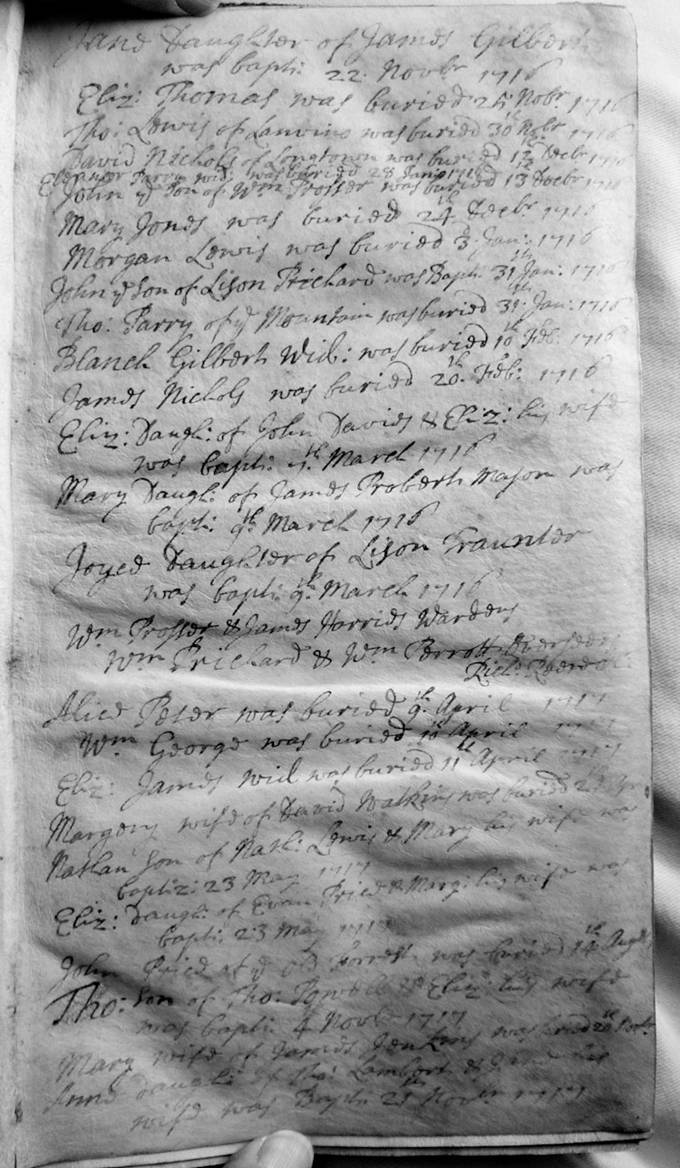 Jane Daughter of James Gilbert
was bapt: 22: Novbr 1716
Eliz: Thomas was buried 25 Nobr 1716
Tho: Lewis of Lanwino was buried 30 Nobr 1716
David Nichols of Longtown was buried 13th Decbr 1716
Elenor Parry wid: was buried 28 Jany 1716
John ye Son of Wm Prosser was buried 13 Decbr 1716
Mary Jones was buried 24th Decbr 1716
Morgan Lewis was buried 3 Jan: 1716
John ye Son of Lison Prichard was Bapt: 31th Jan: 1716
Tho: Parry of ye Mountain was buried 31th Jan: 1716
Blanch Gilbert Wid: was buried 10th Feb: 1716
James Nichols was buried 20th Feb: 1716
Eliz: Daugh: of John Davids & Eliz: his wife
was bapt: th March 1716
Mary Daugh: of James Robert Mason was
bapt: 9th March 1716
Joyce Daughter of Lison Traunter
was bapt: 9th March 1716
Wm Prosser & James Harries Wardens
Wm Prichard & Wm Perrott Overseers
Rich:
Alice Peter was buried 9th April 1717
Wm George was buried 10th April 1717
Eliz: James wid was buried 11th April 1717
Margery wife of David Watkins was buried
Nathan Son of Nath: Lewis & Mary his wife was
baptiz: 23 May 1717
Eliz: Daugh: of Evan Price & Marg: his wife was
bapt: 23 May 1717
John Price of ye old Forrest was buried 14th Augst
Tho: Son of Tho: Powell & Eliz: his wife
was bapt: 4 Novbr 1717
Mary wife of James Jenkins was buried 20th
Anne daugh: of Tho: Lambert & his
wife was Bapt: 23th Novbr 1717